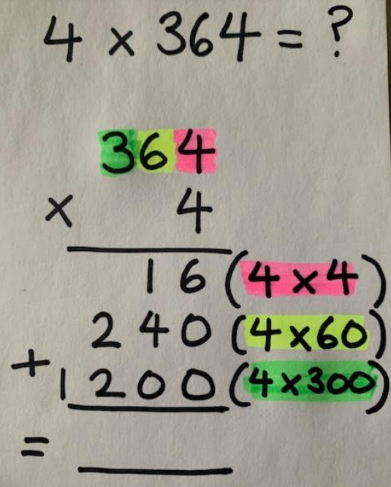 4 × 364 = ?
364
× 4
16 (4 × 4)
240 (4 × 60)
+ 1200 (4 × 300)
=